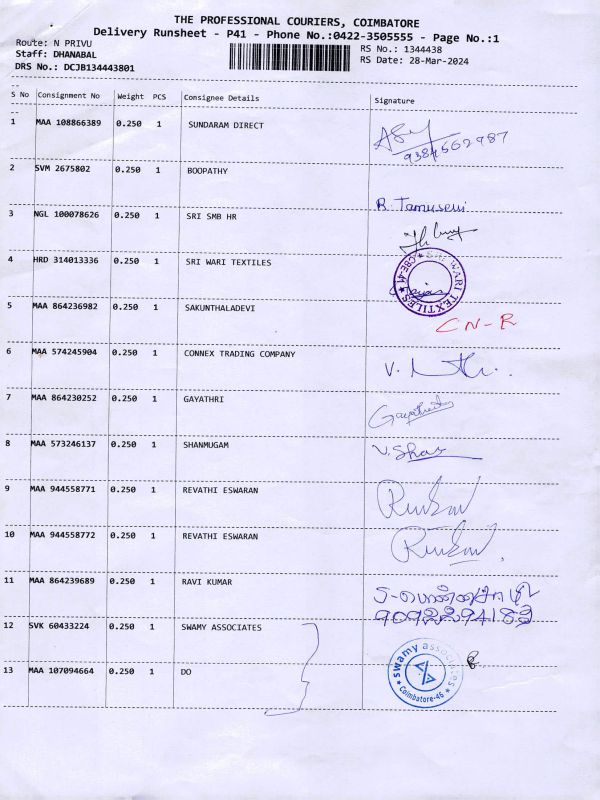 THE PROFESSIONAL COURIERS, COIMBATORE
Delivery Runsheet - P41 - Phone No.:0422-3505555 - Page No.:1
Route: N PRIVU
RS No.: 1344438
Staff: DHANABAL
RS Date: 28-Mar-2024
DRS No.: DCJB134443801
S No Consignment No Weight PCS Consignee Details Signature
1 MAA 108866389 0.250 1 SUNDARAM DIRECT
9384562987
2 SVM 2675802 0.250 1 BOOPATHY
R. Tamilselvi
3 NGL 100078626 0.250 1 SRI SMB HR
4 HRD 314013336 0.250 1 SRI WARI TEXTILES
SRI WARI TEXTILES ★ CBE-41 ★
5 MAA 864236982 0.250 1 SAKUNTHALADEVI
CN-R
6 MAA 574245904 0.250 1 CONNEX TRADING COMPANY
V.
7 MAA 864230252 0.250 1 GAYATHRI
Gayathri
8 MAA 573246137 0.250 1 SHANMUGAM
V. Shan
9 MAA 944558771 0.250 1 REVATHI ESWARAN
10 MAA 944558772 0.250 1 REVATHI ESWARAN
11 MAA 864239689 0.250 1 RAVI KUMAR
9092294183
12 SVK 60433224 0.250 1 SWAMY ASSOCIATES
13 MAA 107094664 0.250 1 DO
swamy associates
★ Coimbatore-46 ★